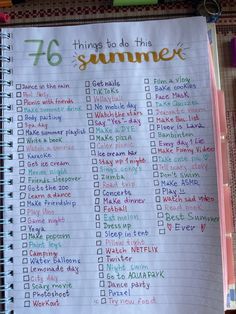 76 things to do this
summer
Dance in the rain
Picnic with friends
Make summer dessert
Body painting
Spa day
Make summer playlist
Write a book
Watch a sunrise
Karaoke
Get ice cream
Movie night
Friends sleepover
Go to the zoo
Learn a dance
Make friendship
Play Uno
Game night
Yoga
Make popcorn
Paint toys
Camping
Water Balloons
Lemonade day
City day
Scary movie
Photoshoot
Workout
Get nails
TikToks
Volleyball
No mobile day
Watch the stars
Say "Yes" - day
Make a DIY
Make pizza
Color pizza
Ice cream bar
Stay up 1 night
Sings songs
Zumba
Road trip
Concerts
Make dinner
Fotball
Eat melon
Dress up
Sleep in tent
Pillow fight
Watch NETFLIX
Twister
Night swim
Go to AQUAPARK
Dance party
Puzzel
Try new food
Film a vlog
Bake cookies
Face Mask
Take Quizzes
Decorate room
Make Fun list
Floor is Lava
Banbinton
Every day 1 lie
Make Funny Video
Take care pet
Tell crush
Don't swim
Make ASMR
Play
Watch sad video
Read book
Best Summer
Ever